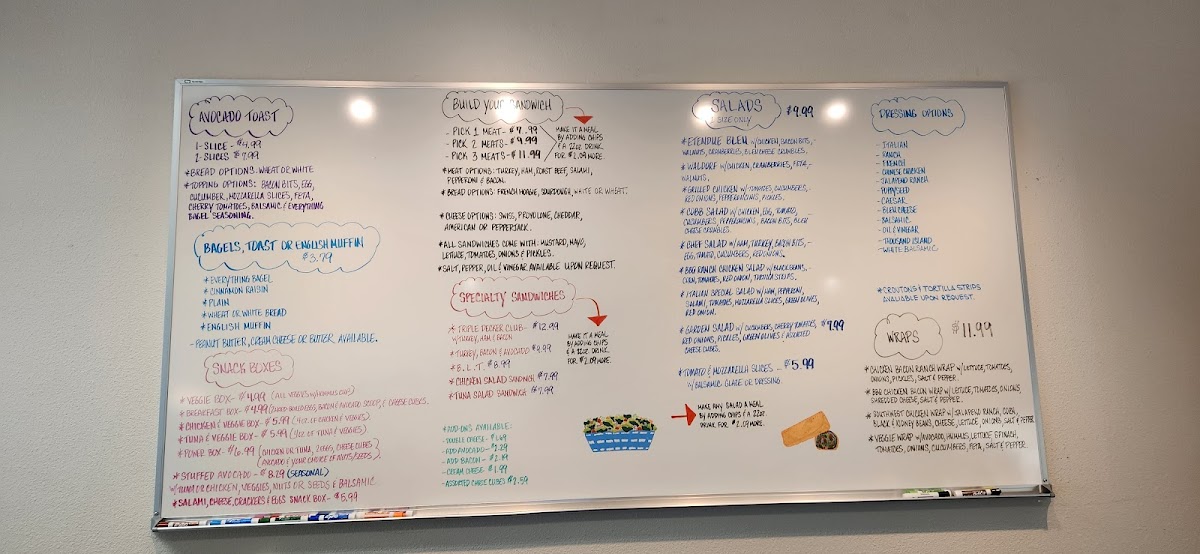 AVOCADO TOAST
1-SLICE - $4.99
2-SLICES $7.99
*BREAD OPTIONS: WHEAT OR WHITE
*TOPPING OPTIONS: BACON BITS, EGG,
CUCUMBER, MOZZARELLA SLICES, FETA,
CHERRY TOMATOES, BALSAMIC & EVERYTHING
BAGEL SEASONING.
BAGELS, TOAST OR ENGLISH MUFFIN
$3.79
*EVERYTHING BAGEL
*CINNAMON RAISIN
*PLAIN
*WHEAT OR WHITE BREAD
*ENGLISH MUFFIN
-PEANUT BUTTER, CREAM CHEESE OR BUTTER AVAILABLE.
SNACK BOXES
*VEGGIE BOX - $4.99 (ALL VEGGIES W/HUMMUS CUP)
*BREAKFAST BOX - $4.99 (2 HARD BOILED EGGS, BACON & AVOCADO SCOOP, & CHEESE CUBES.
*CHICKEN & VEGGIE BOX - $5.99 (4oz OF CHICKEN & VEGGIES).
*TUNA & VEGGIE BOX - $5.99 (4oz OF TUNA & VEGGIES).
*POWER BOX - $6.99 (CHICKEN OR TUNA, 2 EGGS, CHEESE CUBES
AVOCADO & YOUR CHOICE OF NUTS/SEEDS).
*STUFFED AVOCADO - $8.29 (SEASONAL)
W/TUNA OR CHICKEN, VEGGIES, NUTS OR SEEDS & BALSAMIC.
*SALAMI, CHEESE, CRACKERS & EGGS SNACK BOX - $5.99
BUILD YOUR SANDWICH
- PICK 1 MEAT - $7.99
- PICK 2 MEATS - $9.99
- PICK 3 MEATS - $11.99
MAKE IT A MEAL
BY ADDING CHIPS
& A 22oz DRINK
FOR $2.09 MORE.
*MEAT OPTIONS: TURKEY, HAM, ROAST BEEF, SALAMI,
PEPPERONI & BACON.
*BREAD OPTIONS: FRENCH HOAGIE, SOURDOUGH, WHITE OR WHEAT.
*CHEESE OPTIONS: SWISS, PROVOLONE, CHEDDAR,
AMERICAN OR PEPPERJACK.
*ALL SANDWICHES COME WITH: MUSTARD, MAYO,
LETTUCE, TOMATOES, ONIONS & PICKLES.
*SALT, PEPPER, OIL & VINEGAR AVAILABLE UPON REQUEST.
SPECIALTY SANDWICHES
*TRIPLE DECKER CLUB - $12.99
W/TURKEY, HAM & BACON
*TURKEY, BACON & AVOCADO $9.99
*B.L.T. $8.99
*CHICKEN SALAD SANDWICH $7.99
*TUNA SALAD SANDWICH $7.99
MAKE IT A MEAL
BY ADDING CHIPS
& A 22oz DRINK
FOR $2.09 MORE.
*ADD-ONS AVAILABLE:
-DOUBLE CHEESE - $1.69
-ADD AVOCADO - $2.29
-ADD BACON - $2.19
-CREAM CHEESE $1.99
-ASSORTED CHEESE CUBES $2.59
SALADS $9.99
SIZE ONLY
*ETENDUE BLEU W/CHICKEN, BACON BITS, -
WALNUTS, CRANBERRIES, BLEU CHEESE CRUMBLES.
*WALDORF W/CHICKEN, CRANBERRIES, FETA, -
WALNUTS.
*GRILLED CHICKEN W/TOMATOES, CUCUMBERS, -
RED ONIONS, PEPPERONCINIS, PICKLES.
*CUBB SALAD W/CHICKEN, EGG, TOMATO, -
CUCUMBERS, PEPPERONCINIS, BACON BITS, BLEU
CHEESE CRUMBLES.
*CHEF SALAD W/HAM, TURKEY, BACON BITS, -
EGG, TOMATO, CUCUMBERS, RED ONIONS.
*BBQ RANCH CHICKEN SALAD W/BLACK BEANS, -
CORN, TOMATOES, RED ONION, TORTILLA STRIPS.
*ITALIAN SPECIAL SALAD W/HAM, PEPPERONI,
SALAMI, TOMATOES, MOZZARELLA SLICES, GREEN OLIVES,
RED ONION.
*GARDEN SALAD W/CUCUMBERS, CHERRY TOMATOES, $7.99
RED ONIONS, PICKLES, GREEN OLIVES & ASSORTED
CHEESE CUBES.
*TOMATO & MOZZARELLA SLICES - $5.99
W/BALSAMIC GLAZE OR DRESSING.
MAKE ANY SALAD A MEAL
BY ADDING CHIPS & A 22oz
DRINK FOR $2.09 MORE.
DRESSING OPTIONS
- ITALIAN
- RANCH
- FRENCH
- CHINESE CHICKEN
- JALAPENO RANCH
- POPPYSEED
- CAESAR
- BLEU CHEESE
- BALSAMIC
- OIL & VINEGAR
- THOUSAND ISLAND
- WHITE BALSAMIC
*CROUTONS & TORTILLA STRIPS
AVALIABLE UPON REQUEST.
WRAPS $11.99
*CHICKEN BACON RANCH WRAP W/LETTUCE, TOMATOES,
ONIONS, PICKLES, SALT & PEPPER.
*BBQ CHICKEN BACON WRAP W/LETTUCE, TOMATOES, ONIONS,
SHREDDED CHEESE, SALT & PEPPER.
*SOUTHWEST CHICKEN WRAP W/JALAPENO RANCH, CORN,
BLACK & KIDNEY BEANS, CHEESE, LETTUCE, ONIONS, SALT & PEPPER
*VEGGIE WRAP W/AVOCADO, HUMMUS, LETTUCE SPINACH,
TOMATOES, ONIONS, CUCUMBERS, FETA, SALT & PEPPER.